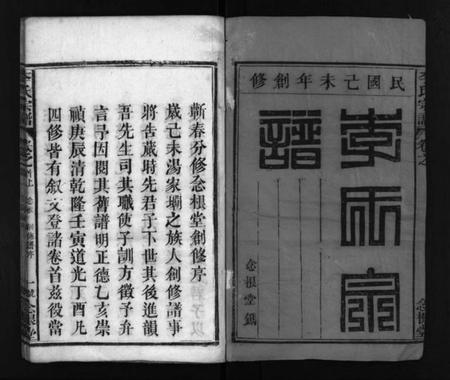 民國己未年創修
李氏宗譜
念根堂鐫
念根堂
蘄春分修念根堂創修序
歲己未湯家壪之族人創修譜事
將告蕆時先君子下世其後進韻
吾先生司其職使子訓方徵予弁
言予因閱其舊譜明正德乙亥崇
禎庚辰清乾隆壬寅道光丁酉凡
四修皆有敘文登諸卷首茲役當
李氏宗譜
卷之